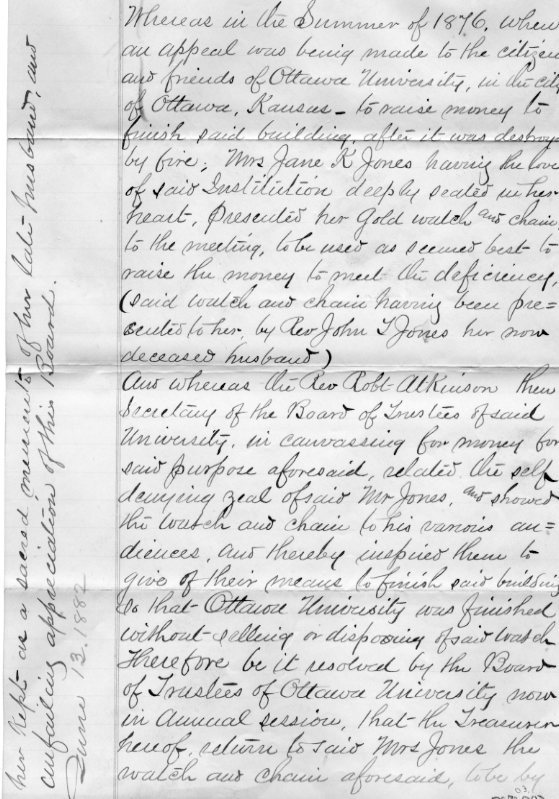 Whereas in the Summer of 1876, when
an appeal was being made to the citizen
and friends of Ottawa University, in the city
of Ottawa, Kansas - to raise money to
finish said building, after it was destroye
by fire; Mrs Jane K Jones having the love
of said Institution deeply seated in her
heart, presented her Gold watch and chain
to the meeting, to be used as seemed best to
raise the money to meet the deficiency,
(said watch and chain having been pre=
sented to her, by Rev John T Jones her now
deceased husband)
And whereas the Rev Robt Atkinson then
Secretary of the Board of Trustees of said
University, in canvassing for money for
said purpose aforesaid, related the self
denying zeal of said Mr Jones, and showed
the watch and chain to his various au=
diences, and thereby inspired them to
give of their means to finish said building
so that Ottawa University was finished
without selling or disposing of said watch
Therefore be it resolved by the Board
of Trustees of Ottawa University now
in Annual session, that the Treasurer
hereof, return to said Mrs Jones the
watch and chain aforesaid, to be by
her kept as a sacred memento of her late husband, and
unfailing appreciation of this Board.
June 13. 1882